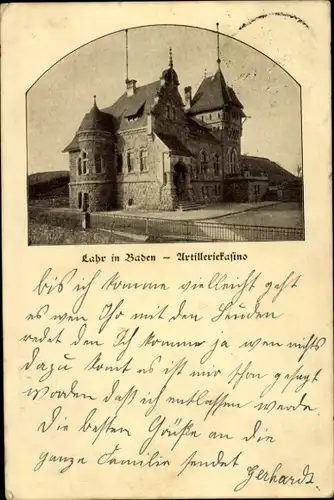 Lahr in Baden – Artilleriekasino
bis ich komme vielleicht geht
es wen Ihr mit den Leuden
redet den Ich komme ja wen nichts
dazu komt es ist mir schon gesagt
worden dass ich entlassen werde
die besten Grüße an die
ganze Familie sendet Gerhardt.